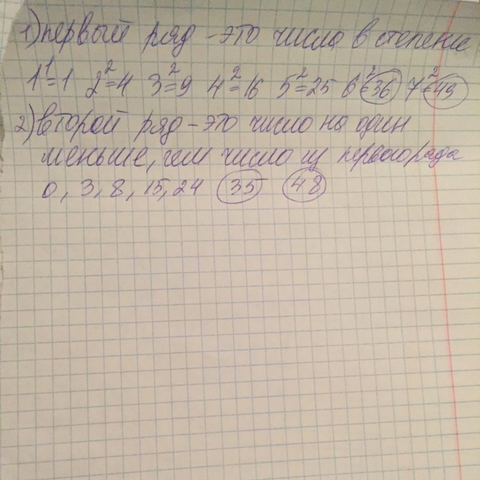 1) первый ряд - это числа в степене
1¹=1 2²=4 3²=9 4²=16 5²=25 6²=36 7²=49
2) второй ряд - это число на один
меньше, чем число из первого ряда
0, 3, 8, 15, 24 35 48